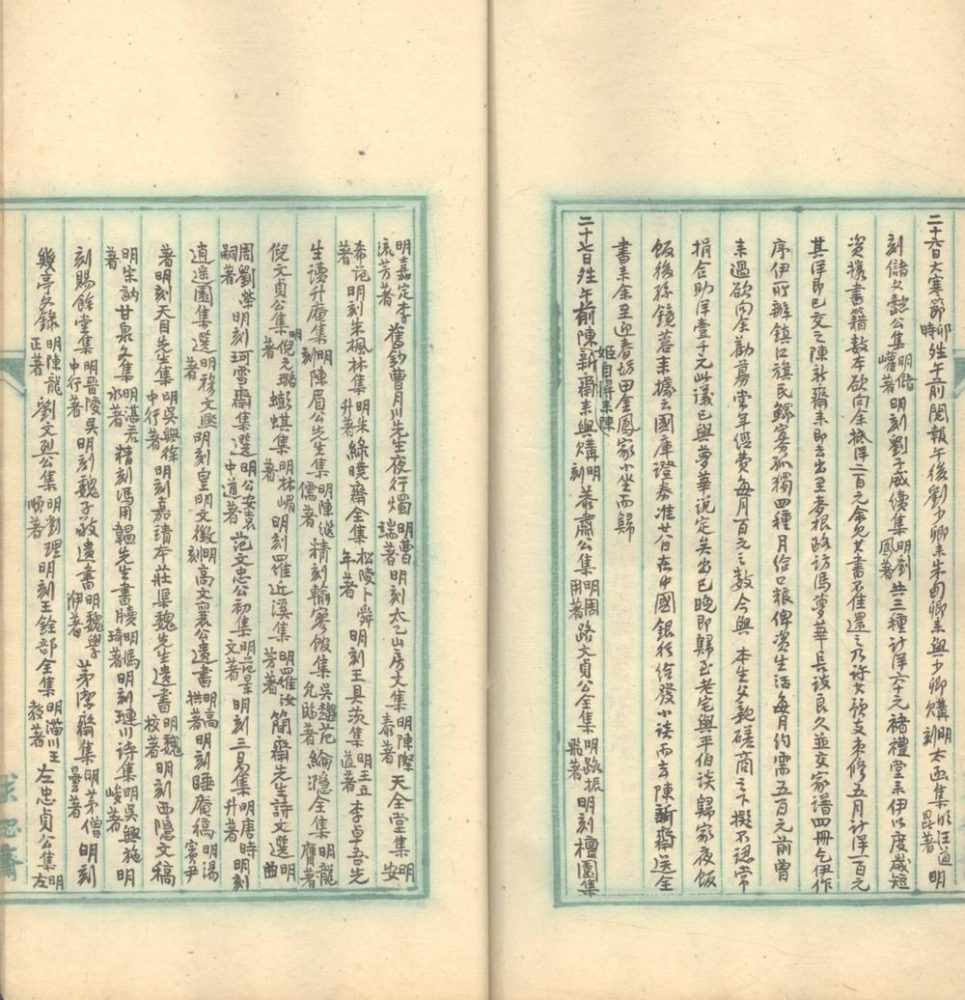 二十六日大寒節卯時 姓午前閱報午後劉少卿來朱甸卿來與少卿購明刻太函集明汪道昆著明
刻儲文懿公集明儲巏著明刻劉子威續集明劉鳳著共三種計洋六十元禇禮堂來伊以度歲短
資攜書籍數本欲向余抵洋二百元余允其書不佳還之乃許其預支束修五月計洋一百元
其洋即已交之陳新齋來即去出至麥根路訪馮夢華長談良久並交家譜四冊乞伊作
序伊所辦鎮江旗民鰥寡孤獨四種月給口糧俾資生活每月約需五百元前曾
來過欲向余勸募常年經費每月百元之數今與 本生父親磋商之下擬不認常
捐合助洋壹千元此議已與夢華說定矣出已晚即歸至老宅與平伯談歸家夜飯
飯後孫鏡蓉來據云國庫證券准廿八日在中國銀行給發小談而去陳新齋送全
書來余至迎春坊田金鳳家小坐而歸
二十七日姓午前陳新齋來與購明刻恭肅公集明周用著路文貞公全集明路振飛著明刻檀園集
明嘉定李流芳著舊鈔曹月川先生夜行燭明曹端著明刻太乙山房文集明陳際泰著天全堂集明安
希范著明刻朱楓林集明朱升著綠曉齋全集松陵卜舜年著明刻王具茨集明王立道著李卓吾先
生讀升庵集明刻陳眉公先生集明陳繼儒著精刻輸寥館集吳趨范允臨著綸隱全集明龍膺著
倪文貞公集明倪元璐著蟛蜞集明林嵋著明刻羅近溪集明羅汝芳著簡齋先生詩文選明
周劉榮嗣著明刻珂雪齋集選明公安袁中道著范文忠公初集明范景文著明刻三易集明唐時升著明刻
逍遙園集選明穆文熙著明刻皇明文徵明刻高文襄公遺書明高拱著明刻睡庵稿明湯賓尹
著明刻天目先生集明吳興徐中行著明刻嘉靖本莊渠魏先生遺書明魏校著明刻西隱文稿
明宋訥著甘泉文集明湛若水著精刻馮用韞先生書牘明馮琦著明刻璉川詩集明吳興施峻著明
刻賜餘堂集明晉陵吳中行著明刻魏子敬遺書明魏學洢著茅潔齋集明茅僧曇著明刻
幾亭文錄明陳龍正著劉文烈公集明劉理順著明刻王銓部全集明淄川王教著左忠貞公集明左